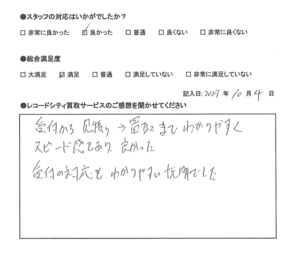 ●スタッフの対応はいかがでしたか？
□ 非常に良かった ☑ 良かった □ 普通 □ 良くない □ 非常に良くない
●総合満足度
□ 大満足 ☑ 満足 □ 普通 □ 満足していない □ 非常に満足していない
記入日:2023 年 10 月 4 日
●レコードシティ買取サービスのご感想を聞かせてください
受付から 見積り → 買取 まで わかりやすく
スピード感もあり 良かった
受付の対応も わかりやすい 説明でした